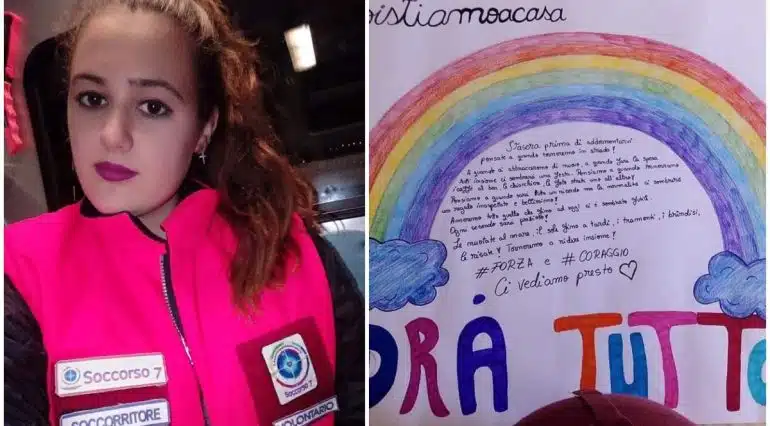 Soccorso 7
SOCCORRITORE
VOLONTARIO
istiamoacasa
Stasera prima di addormentarvi
pensate a quando torneremo in strada!
a quando la spesa
insieme ci sembrerà una festa. Pensiamo a quando torneranno
i caffè al bar, le chiacchiere, le foto stretti uno all'altro!
Pensiamo a quando sarà tutto un ricordo ma la normalità ci sembrerà
un regalo inaspettato e bellissimo!
Ameremo tutto quello che fino ad oggi ci è sembrato futile.
Ogni secondo sarà prezioso!
Le nuotate al mare, il sole fino a tardi, i tramonti, i brindisi,
le risate! Torneremo a ridere insieme!
#FORZA e #CORAGGIO
Ci vediamo presto
DRÀ TUTTO